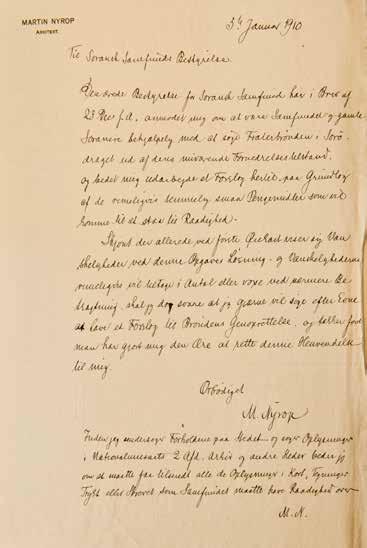 MARTIN NYROP
ARKITEKT.
3die Januar 1910
Til Soransk Samfunds Bestyrelse.
Den ærede Bestyrelse for Soransk Samfund har i Brev af
23 Dec f.A. anmodet mig om at være Samfundet og gamle
Soranere behjælpelig med at søge Fraterbrønden i Sorø
draget ud af dens nuværende Fornedrelsestilstand,
og bedet mig udarbejde et Forslag hertil paa Grundlag
af de rimeligvis temmelig smaa Pengemidler som vil
komme til at staa til Raadighed.
Skjønt der allerede ved første Øiekast viser sig Van
skeligheder ved denne Opgaves Løsning - og Vanskelighederne
rimeligvis vil tiltage i Antal eller voxe ved nærmere Be
tragtning, skal jeg dog svare at jeg gjærne vil søge efter Evne
at lave et Forslag til Brøndens Genoprettelse, og takker fordi
man har gjort mig den Ære at rette denne Henvendelse
til mig.
Ærbødigst
M. Nyrop
Inden jeg undersøger Forholdene paa Stedet og søger Oplysninger
i Nationalmuseets 2 Afd. Arkiv og andre Steder beder jeg
om at maatte faa tilsendt alle de Oplysninger i Kort, Tegninger
Tryk eller Skrevet som Samfundet maatte have Raadighed over
M.N.